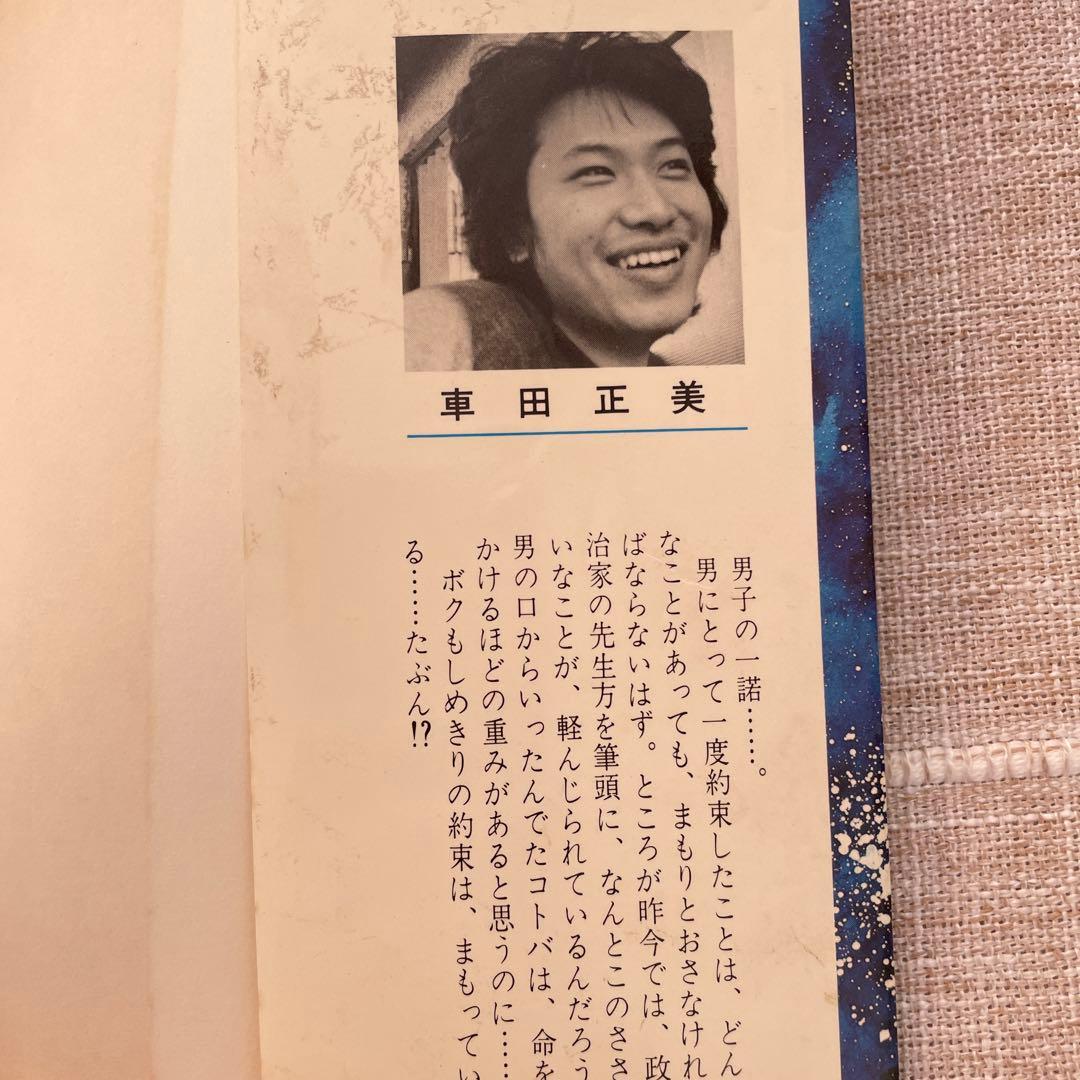 車田正美
男子の一諾……。
男にとって一度約束したことは、どん
なことがあっても、まもりとおさなけれ
ばならないはず。ところが昨今では、政
治家の先生方を筆頭に、なんとこのささ
いなことが、軽んじられているんだろう
男の口からいったんでたコトバは、命を
かけるほどの重みがあると思うのに……
ボクもしめきりの約束は、まもってい
る……たぶん!?